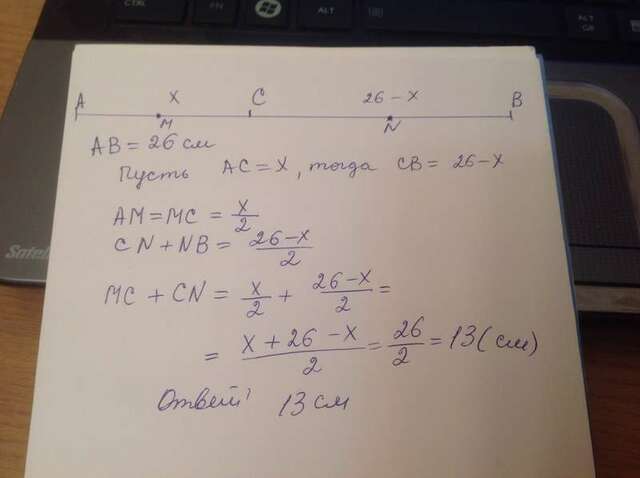 CTRL
FN
ALT
ALT GR
A x C 26-x B
M N
AB = 26 см
Пусть AC = x, тогда CB = 26-x
AM = MC = x/2
CN + NB = 26-x/2
MC + CN = x/2 + 26-x/2 =
= x + 26 - x/2 = 26/2 = 13 (см)
Ответ: 13 см
Satel